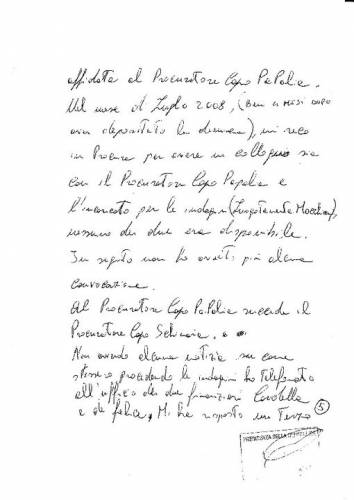 affidata al Procuratore Capo PaPalia.
Nel mese di Luglio 2008, (ben 4 MESI DOPO
aver depositato la denuncia), mi reco
in Procura per avere un colloquio sia
con il Procuratore Capo Papalia e
l'incaricato per le indagini (Luogotenente
nessuno dei due era disponibile.
In seguito non ho avuto più alcuna
convocazione.
Al Procuratore Capo PaPalia succede il
Procuratore Capo
Non avendo alcuna notizia su come
stessero procedendo le indagini ho telefonato
all'ufficio dei due finanzieri
e de felice, M. ha risposto un Terzo
5